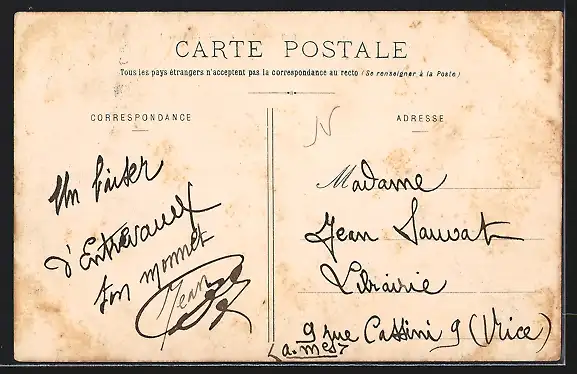 CARTE POSTALE
Tous les pays étrangers n'acceptent pas la correspondance au recto (Se renseigner à la Poste)
CORRESPONDANCE
ADRESSE
N
Un baiser
d'Entrevaux
ton monnet
Jean
Madame
Jean Sauvat
Librairie
9 rue Cassini 9 (Nice)
(a. mes)